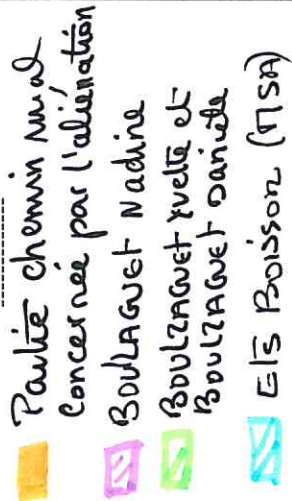 Partie chemin rural
concernée par l'aliénation
BOULAGUET Nadine
BOULZAGUET Yvette et
BOULZAGUET Danièle
Ets Boisson (MSA)